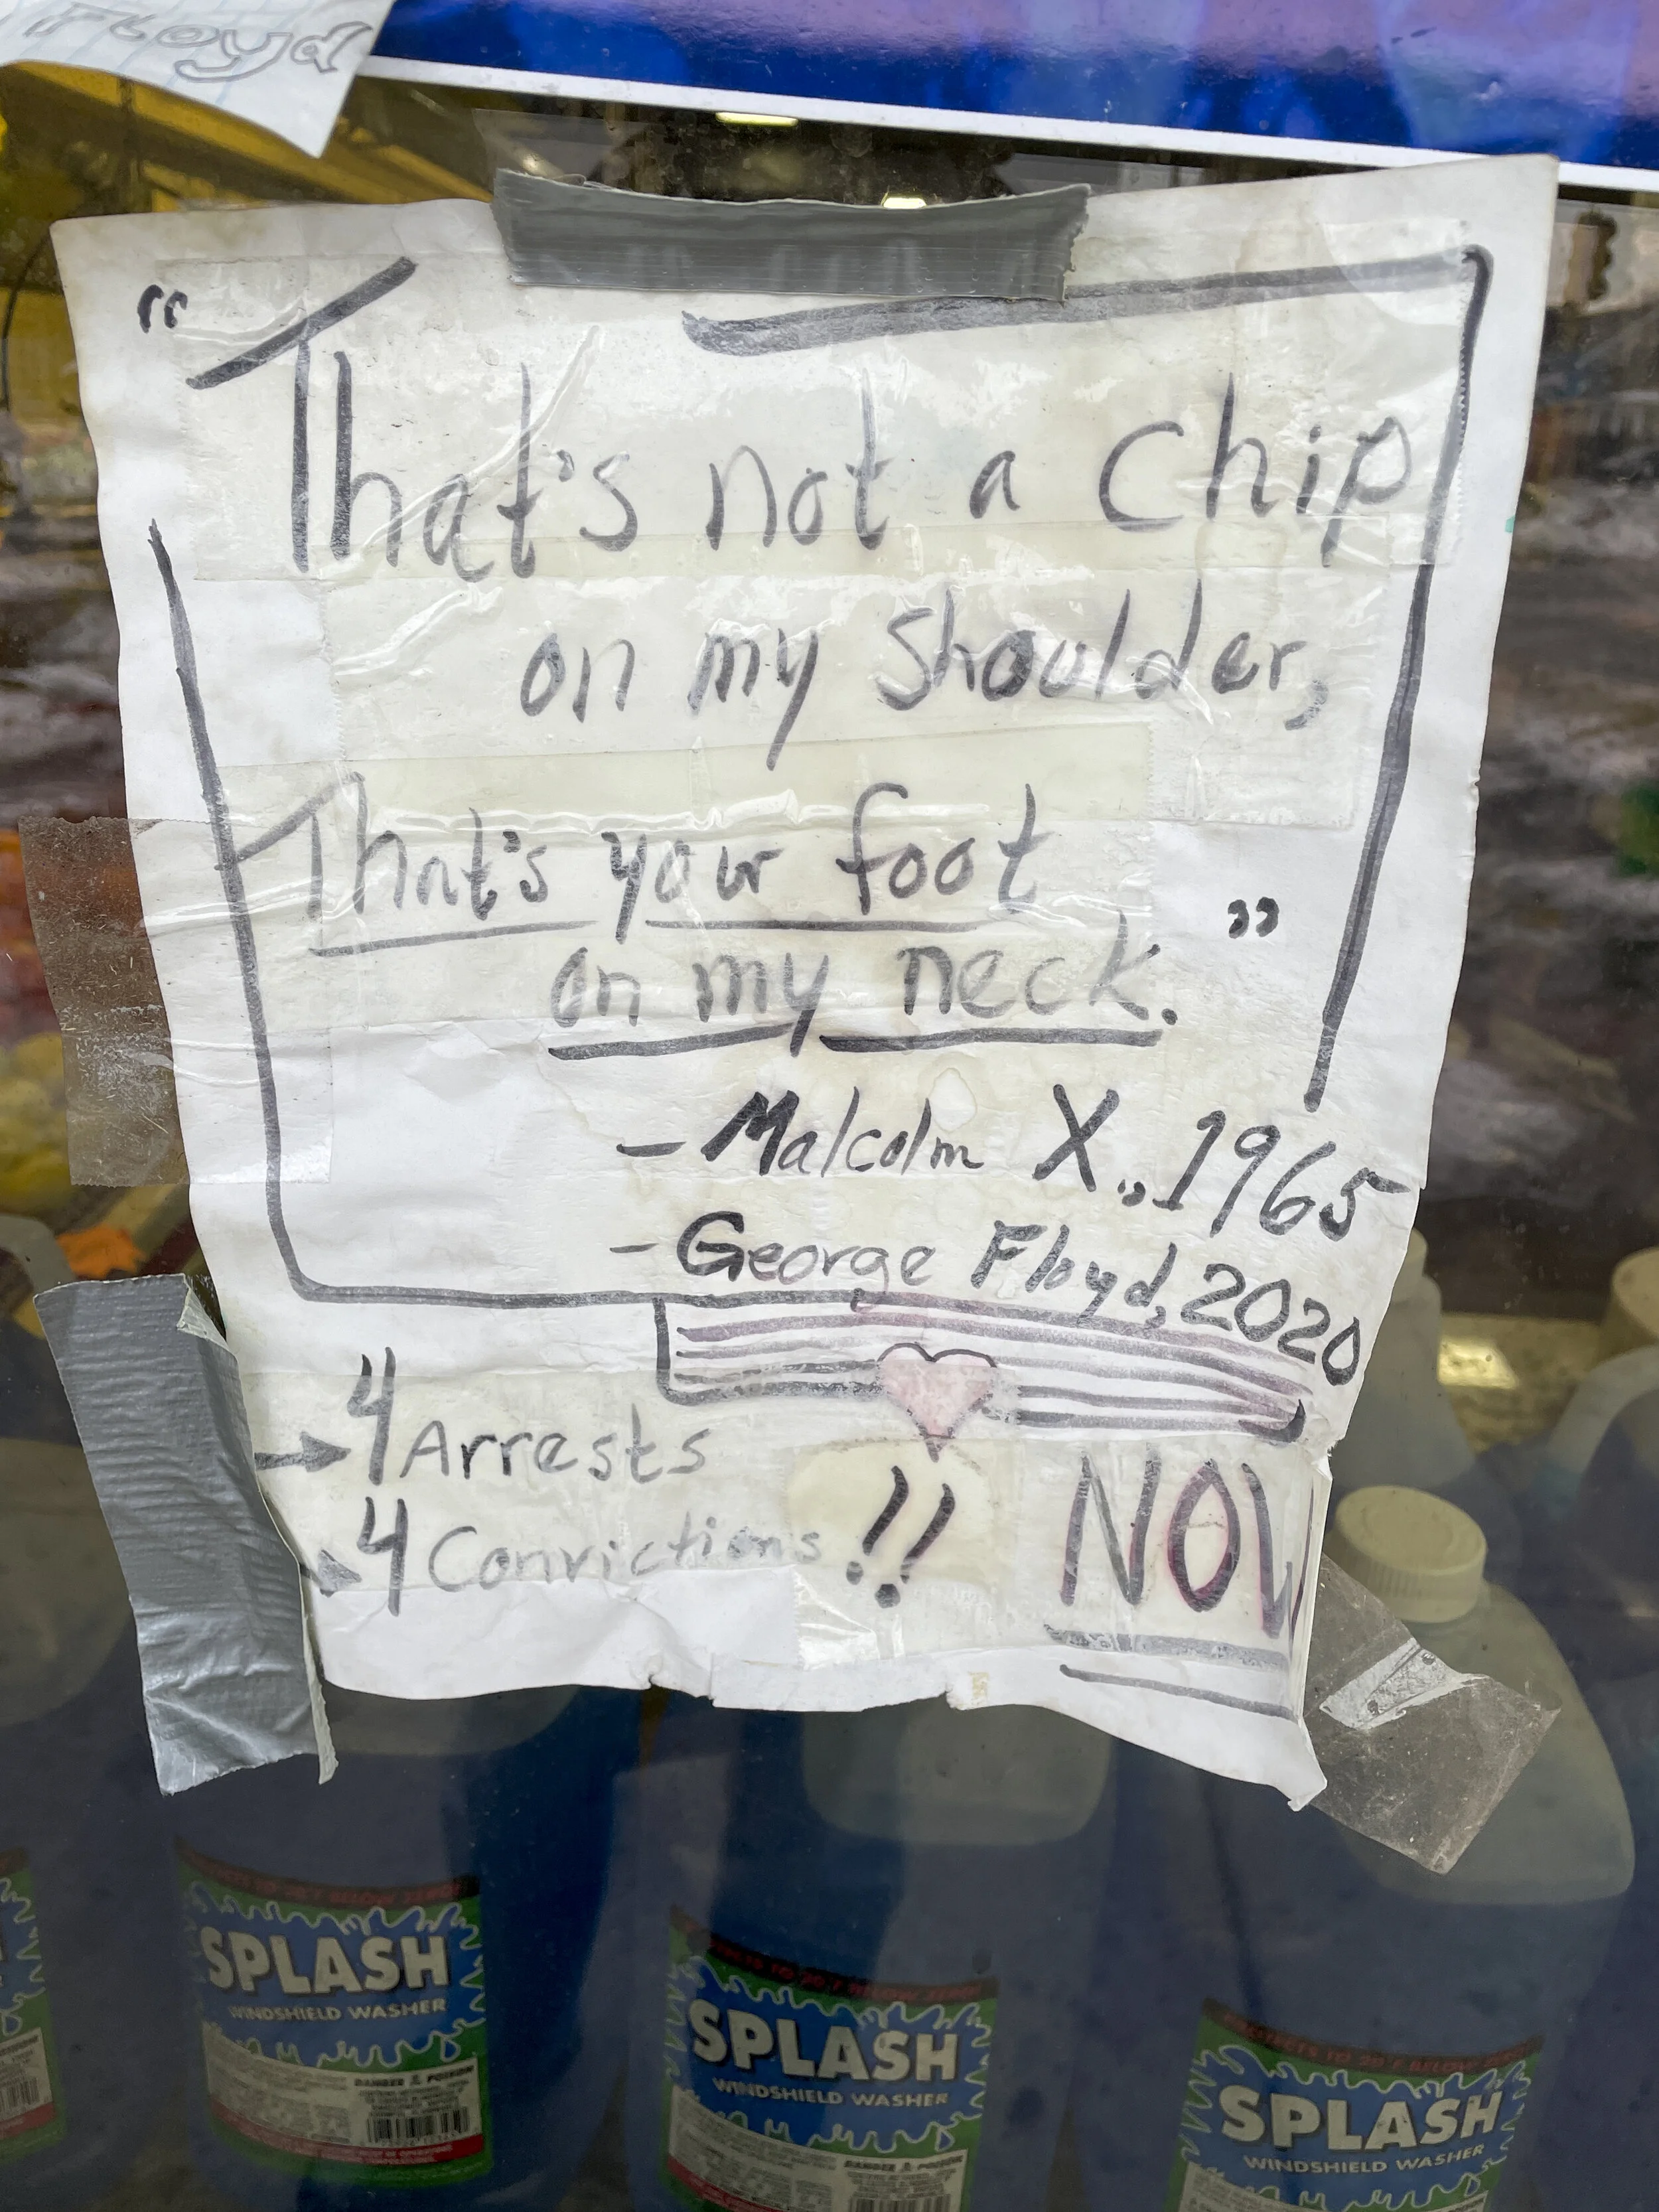 Floyd
" That's not a chip
on my shoulder,
That's your foot
on my neck. "
- Malcolm X., 1965
- George Floyd, 2020
→ 4 Arrests
→ 4 Convictions !! NOW
SPLASH
WINDSHIELD WASHER
DANGER POISON
SPLASH
WINDSHIELD WASHER
DANGER POISON
SPLASH
WINDSHIELD WASHER